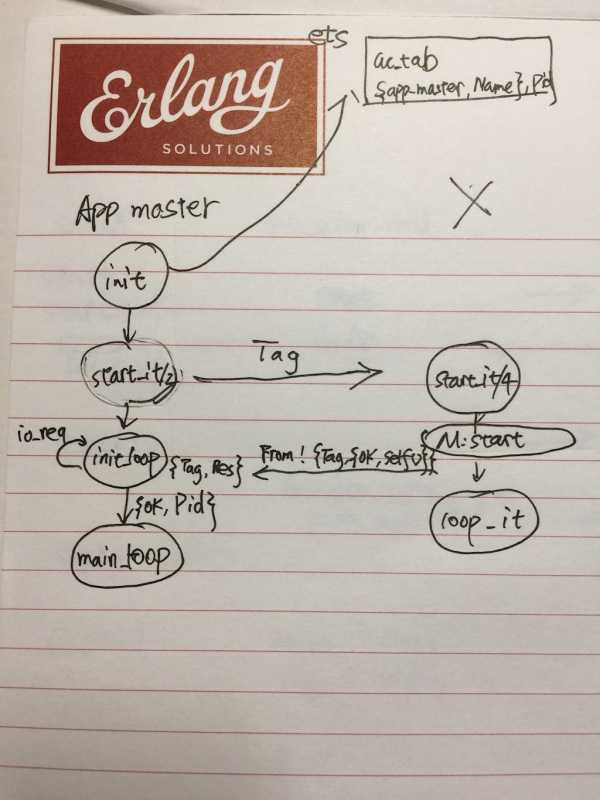 ets
ac_tab
{app_master, Name}, Pid
Erlang
SOLUTIONS
App master
X
init
start_it/2
Tag
start_it/4
io_req
init_loop
{Tag, Res}
From ! {Tag, {ok, self()}}
M:start
{ok, Pid}
main_loop
loop_it